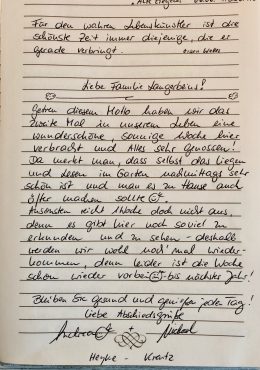 Für den wahren Lebenskünstler ist die
schönste Zeit immer diejenige, die er
gerade verbringt.
Liebe Familie Langerbeins!
Getreu diesem Motto haben wir das
zweite Mal in unserem Leben eine
wunderschöne, sonnige Woche hier
verbracht und Alles sehr genossen!
Da merkt man, dass selbst das Liegen
und Lesen im Garten nachmittags sehr
schön ist und man es zu Hause auch
öfter machen sollte
Ansonsten reicht 1 Woche doch nicht aus,
denn es gibt hier noch soviel zu
erkunden und zu sehen - deshalb
werden wir wohl noch mal wieder-
kommen, denn leider ist die Woche
schon wieder vorbei - bis nächstes Jahr!
Bleiben Sie Gesund und genießen jeden Tag!
Liebe Abschiedsgrüße
Andrea + Michael
Heyne - Krentz